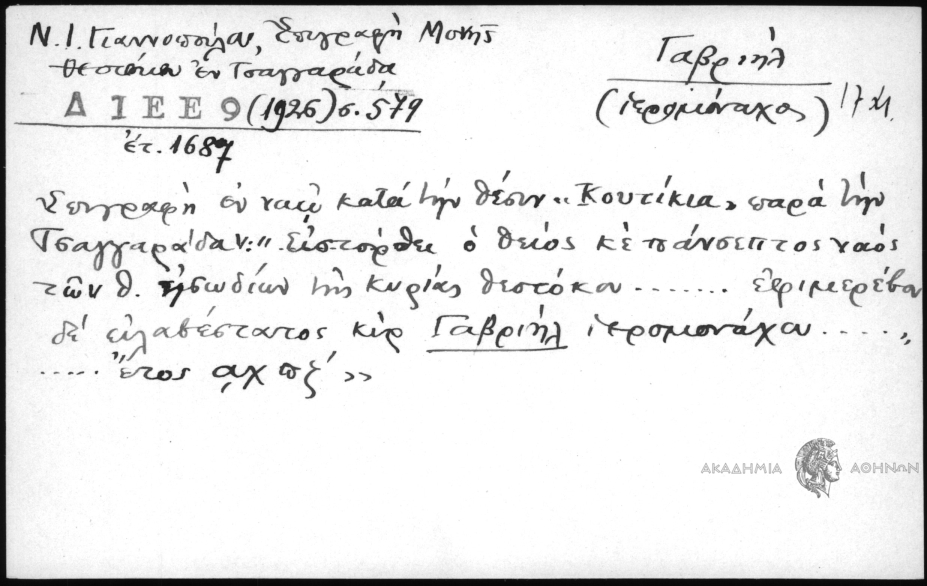 Ν. Ι. Γιαννοπούλου, Ἐπιγραφὴ Μονῆς
Θεοτόκου ἐν Τσαγγαράδᾳ
Δ Ι Ε Ε 9 (1926) σ. 579
ἔτ. 1687
Γαβριήλ
(ἱερομόναχος)
Ἐπιγραφὴ ἐν ναῷ κατά τήν θέσιν «Κουτίκια» παρά τήν
Τσαγγαράδαν: "Εἱστορήθει ὁ θεῖος κὲ πάνσεπτος ναός
τῶν θ. ἠσωδίων τῆς κυρίας θεοτόκου ....... ἐφιμερέβον
δέ εὐλαβέστατος κὶρ Γαβριήλ ἱερομονάχου ....."
..... Ἔτος αχπζ´ »
ΑΚΑΔΗΜΙΑ ΑΘΗΝΩΝ